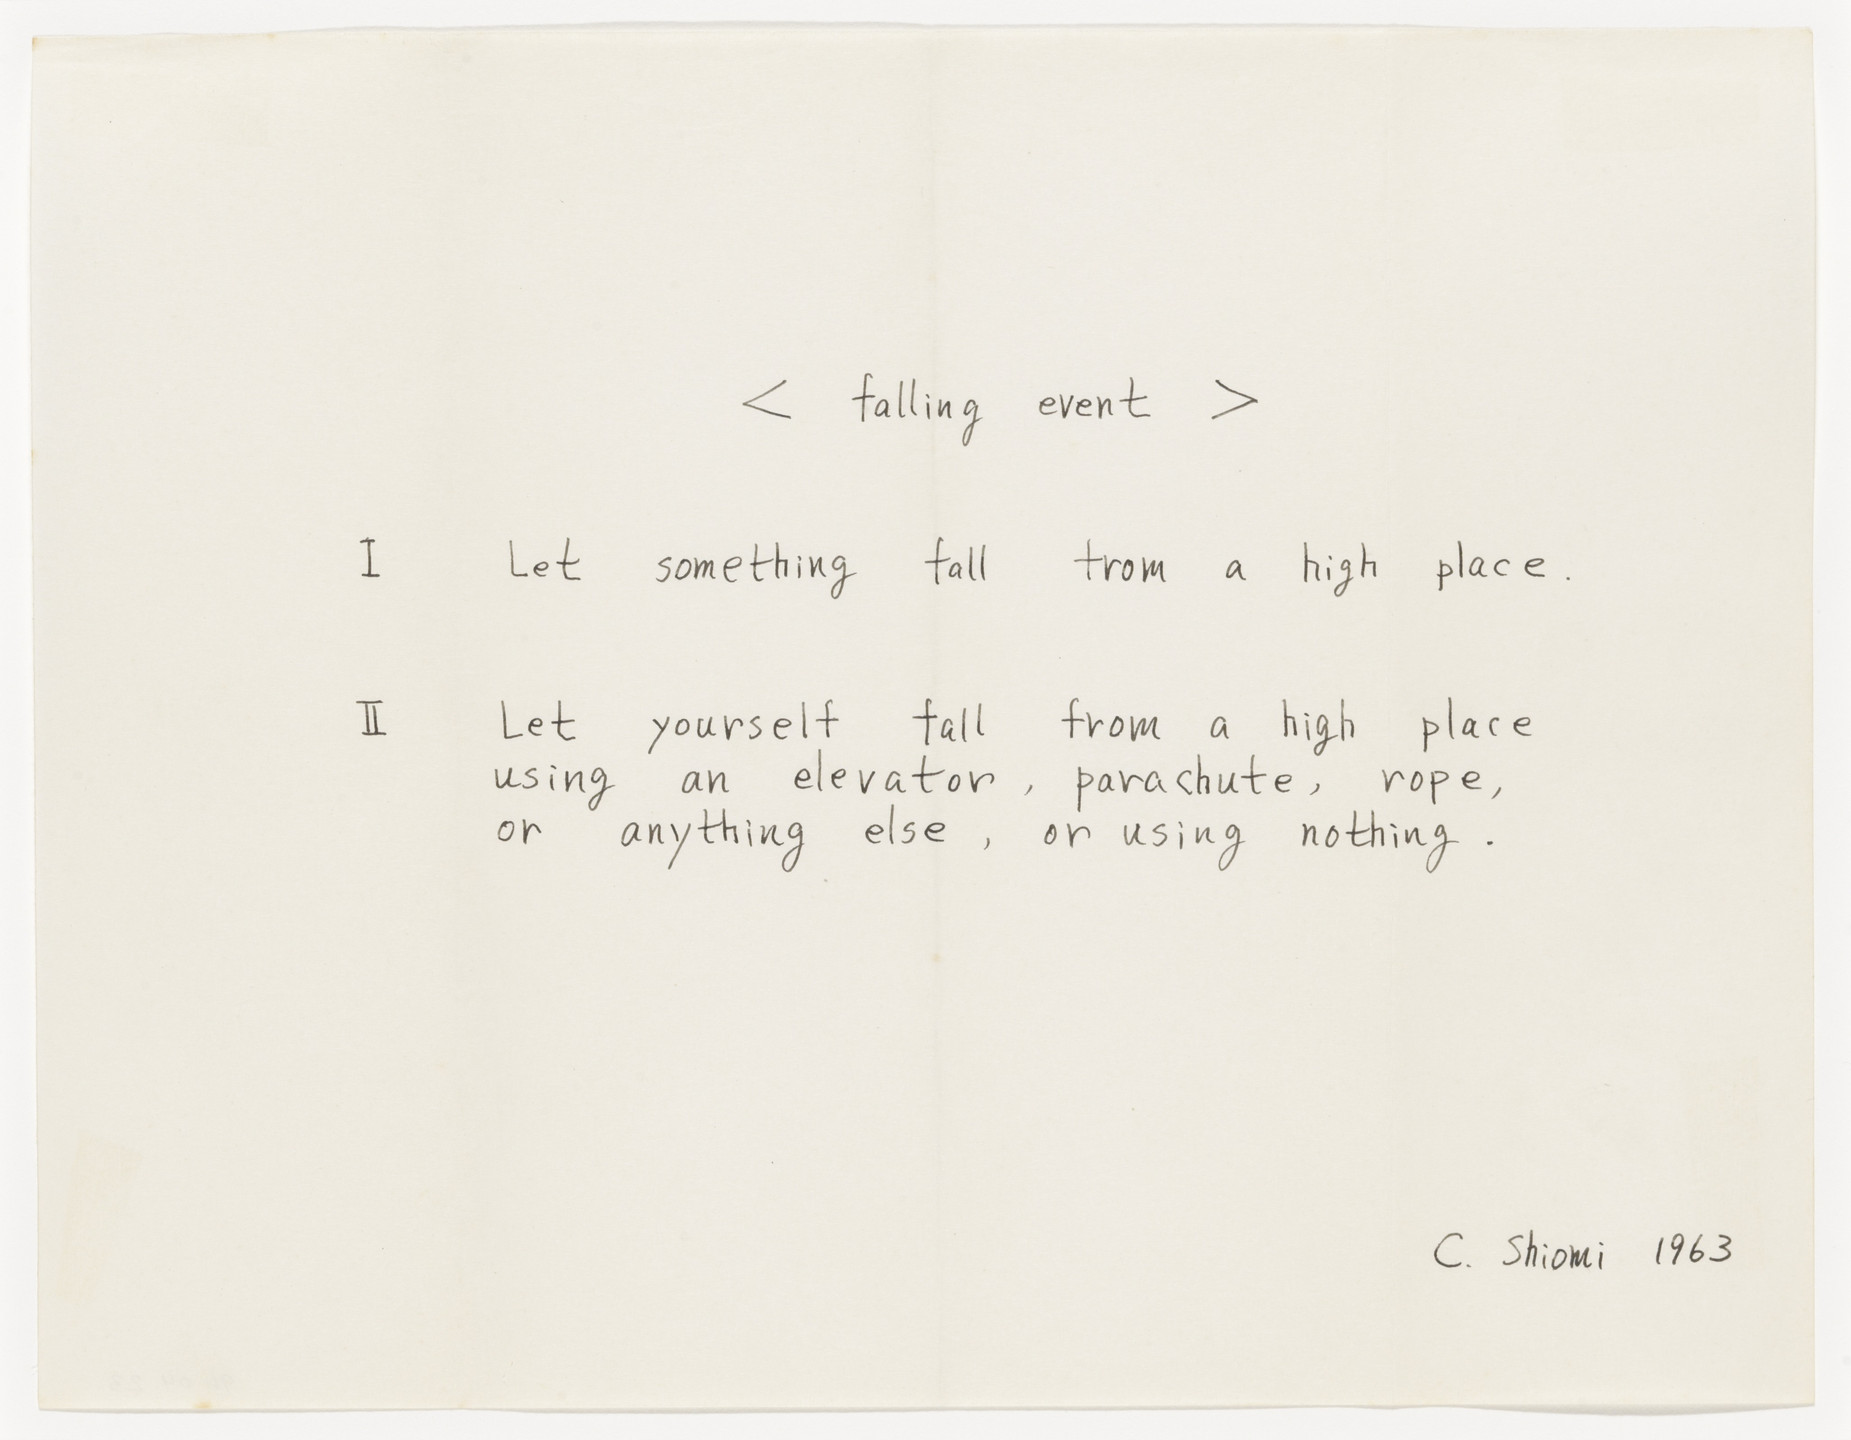 < falling event >
I Let something fall from a high place.
II Let yourself fall from a high place
using an elevator, parachute, rope,
or anything else, or using nothing.
C. Shiomi 1963